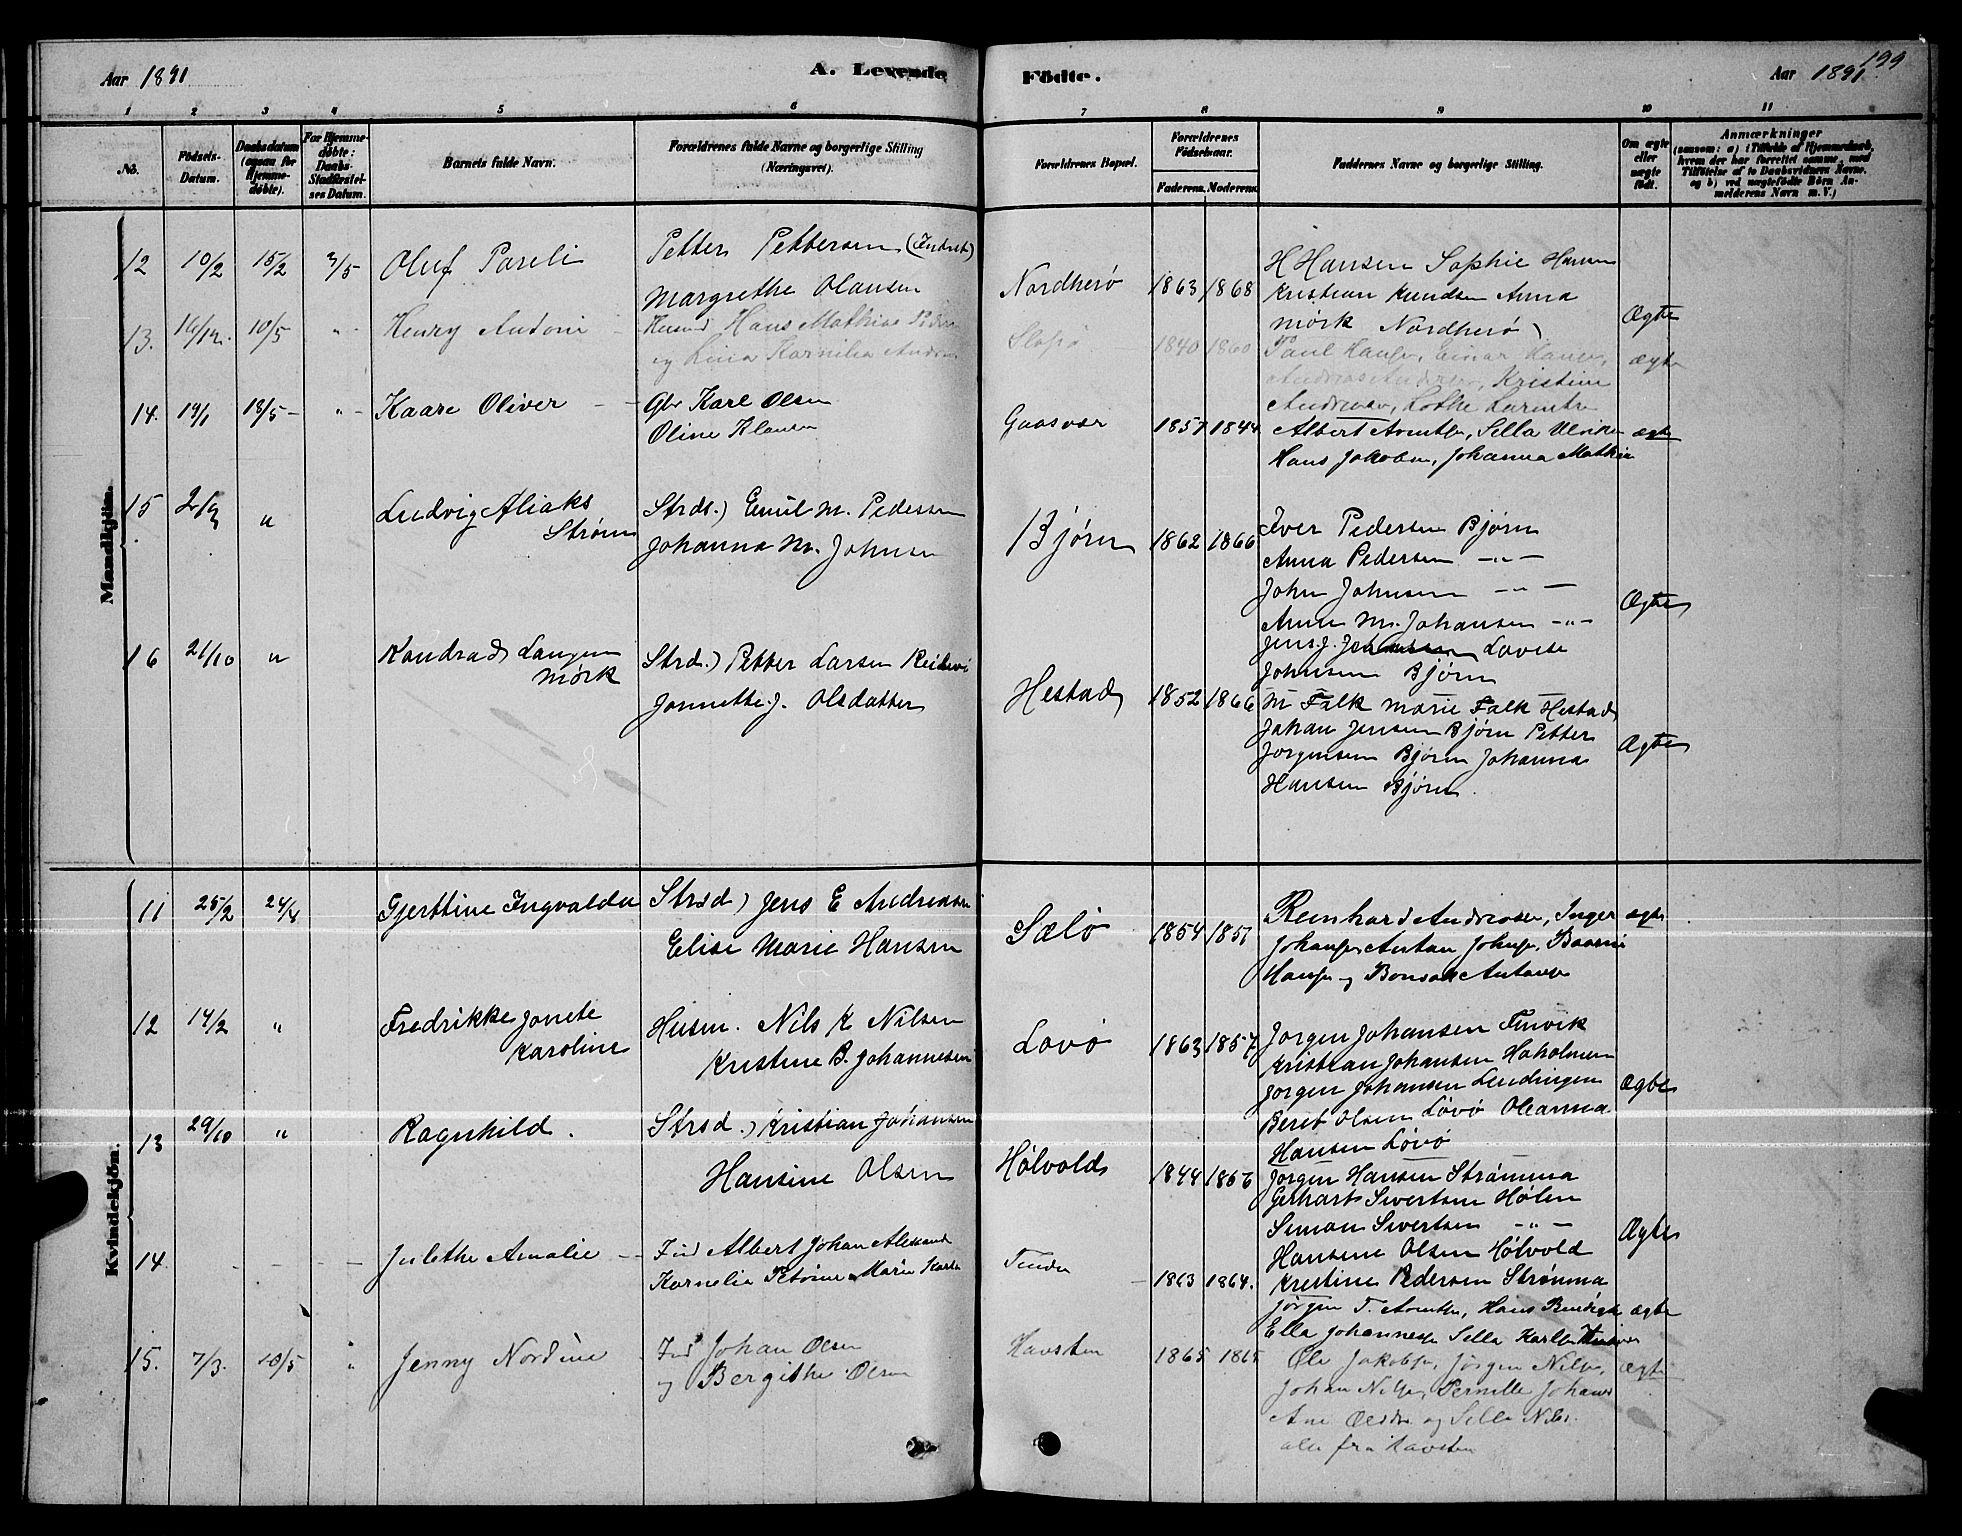 Aar 1891
A. Levende
Födte.
Aar 1891
199
1 2 3 4 5 6 7 8 9 10 11
No.
Födsels-Datum.
Daabsdatum (ogsaa for Hjemme-döbte).
For Hjemme-döbte: Daabs Stadfæstel-ses Datum.
Barnets fulde Navn.
Forældrenes fulde Navne og borgerlige Stilling (Næringsvei).
Forældrenes Bopæl.
Forældrenes Födselsaar.
Faderens. Moderens.
Faddernes Navne og borgerlige Stilling.
Om ægte eller uægte födt.
Anmærkninger (saasom: a) i Tilfælde af Hjemmedaab, hvem der har forrettet samme, med Tilföielse af to Daabsvidners Navne, og b) ved uægtefödte Börn An-melderens Navn m. V.)
Mandkjön.
12 10/2 15/2 3/5 Oluf Pareli
Petter Pettersen (Inderst)
Margrethe Olausen
Nordherø 1863 1868
H Hansen Sophie Hansen
Kristian Knudsen Anna
Mørk Nordherø
Ægte
13. 16/12. 10/5 " Henry Antoni
Husmd Hans Mathias
og Lina Kornilia
1840 1860
Paul Hansen, Einar Hansen,
Kristine
ægte
14. 19/1 18/5 " Kaare Oliver
Gbr Karl Olsen
Oline Klausen
Gaasvær 1851 1844
Albert Arntsen, Sella Ulrikn
Hans Jakobsen, Johanna Mathis
ægte
15 2/9 " Ludvig Aliaks
Strøm
Strds.) Emil M. Pedersen
Johanna M. Johnsen
Bjørn 1862 1866
Iver Pedersen Bjørn
Anna Pedersen -"-
John Johnsen -"-
Anna M. Johansen -"-
Jens J. Lovise
Johnsen Bjørn
Ægte
16 21/10 " Kondrad Langen
Mørk
Strds.) Petter Larsen
Jonnette J. Olsdatter
Hestad 1852 1866
M Falk Marie Falk Hestad
Johan Jensen Bjørn Petter
Jørgensen Bjørn Johanna
Hansen Bjørn.
Ægte
Kvindekjön.
11 25/2 24/4 Gjerttine Ingvalda
Strsd) Jens E Andreasen
Elise Marie Hansen
Sælø 1854 1851
Reinhard Andreasen, Inger
Johansen Antan Johnsen,
Hansen og Antansen
ægte
12 14/2 " Fredrikke Jonete
Karoline
Husm. Nils K Nilsen
Kristine B. Johannesen
Lovø 1863 1857
Jørgen Johansen Finvik
Kristian Johansen Hoholmen
Jorgen Johansen Lendingen
Beret Olsen Løvø Oleanna
Hansen Løvø
Ægte
13 29/10 " Ragnhild.
Strsd.) Kristian Johansen
Hansine Olsen
Hølvold 1844 1856
Jørgen Hansen Strømma
Gerhart Sivertsen Hølen
Simon Sivertsen -"-
Hansine Olsen Hølvold
Kristine Pedersen Strømma
Ægte
14 - - - Julethe Amalie
Ind Albert Johan
Kornelia Marie
1863 1864.
Jørgen T. Arntsen, Hans
Ella Johannessen Sella Karlsen
ægte
15. 7/3. 10/5 " Jenny Nordine
Ind Johan Olsen
og Bergithe Olsen
Havsten 1865 1865
Ole Jakobsen, Jørgen Nilsen,
Johan Nilsen, Pernille Johans
Ane Olsdtr og Sella Nils.
alle fra Havsten
Ægte